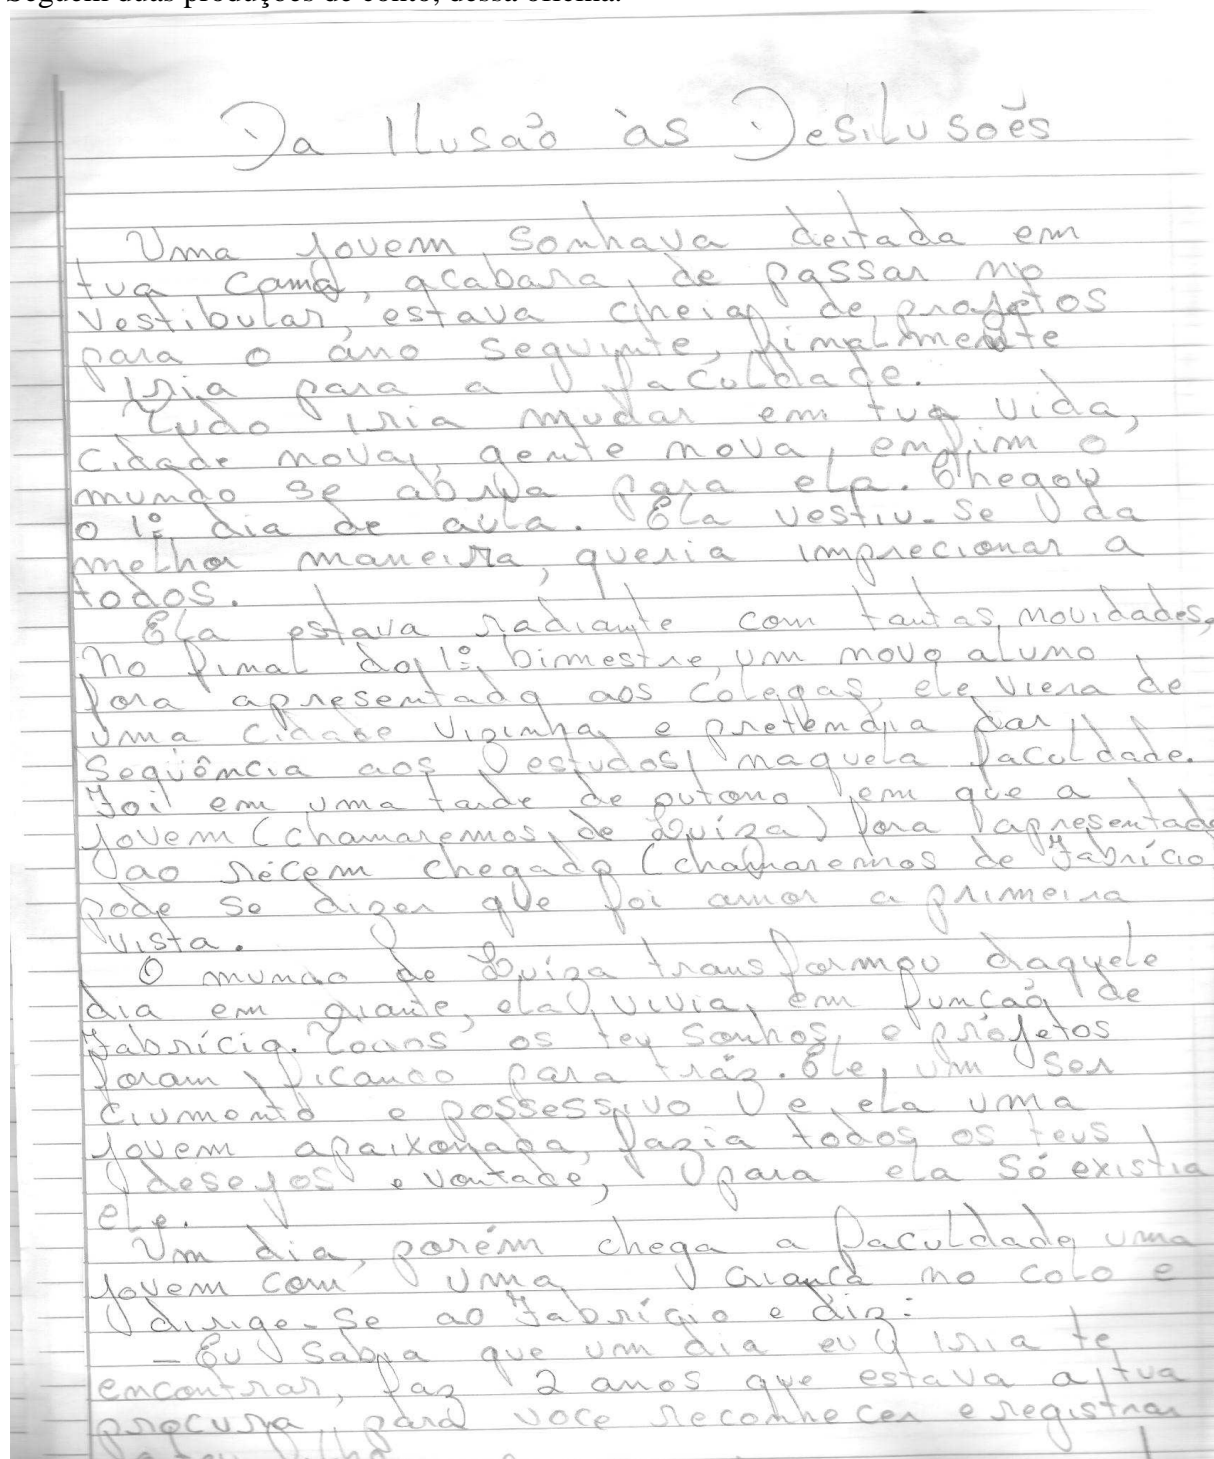 Seguem duas produções de conto, dessa oficina.
Da Ilusão às Desilusões
Uma jovem sonhava deitada em
tua cama, acabara de passar no
vestibular, estava cheia de projetos
para o ano seguinte, finalmente
iria para a faculdade.
Tudo iria mudar em tua vida,
cidade nova, gente nova, enfim o
mundo se abria para ela. Chegou
o 1º dia de aula. Ela vestiu-se da
melhor maneira, queria imprecionar a
todos.
Ela estava radiante com tantas novidades,
no final do 1º bimestre, um novo aluno
fora apresentado aos colegas, ele viera de
uma cidade vizinha e pretendia dar
sequência aos estudos naquela faculdade.
Foi em uma tarde de outono, em que a
jovem (chamaremos de Luiza) fora apresentada
ao récem chegado (chamaremos de Fabrício
pode se dizer que foi amor a primeira
vista.
O mundo de Luiza transformou daquele
dia em diante, ela vivia em função de
Fabrício. Todos os teu sonhos e projetos
foram ficando para tráz. Ele, um ser
ciumento e possessivo e ela uma
jovem apaixonada, fazia todos os teus
desejos e vontade, para ela só existia
ele.
Um dia, porém chega a faculdade uma
jovem com uma criança no colo e
dirige-se ao Fabrício e diz:
- Eu sabia que um dia eu iria te
encontrar, faz 2 anos que estava a tua
procura, para voce reconhecer e registrar
o teu filho